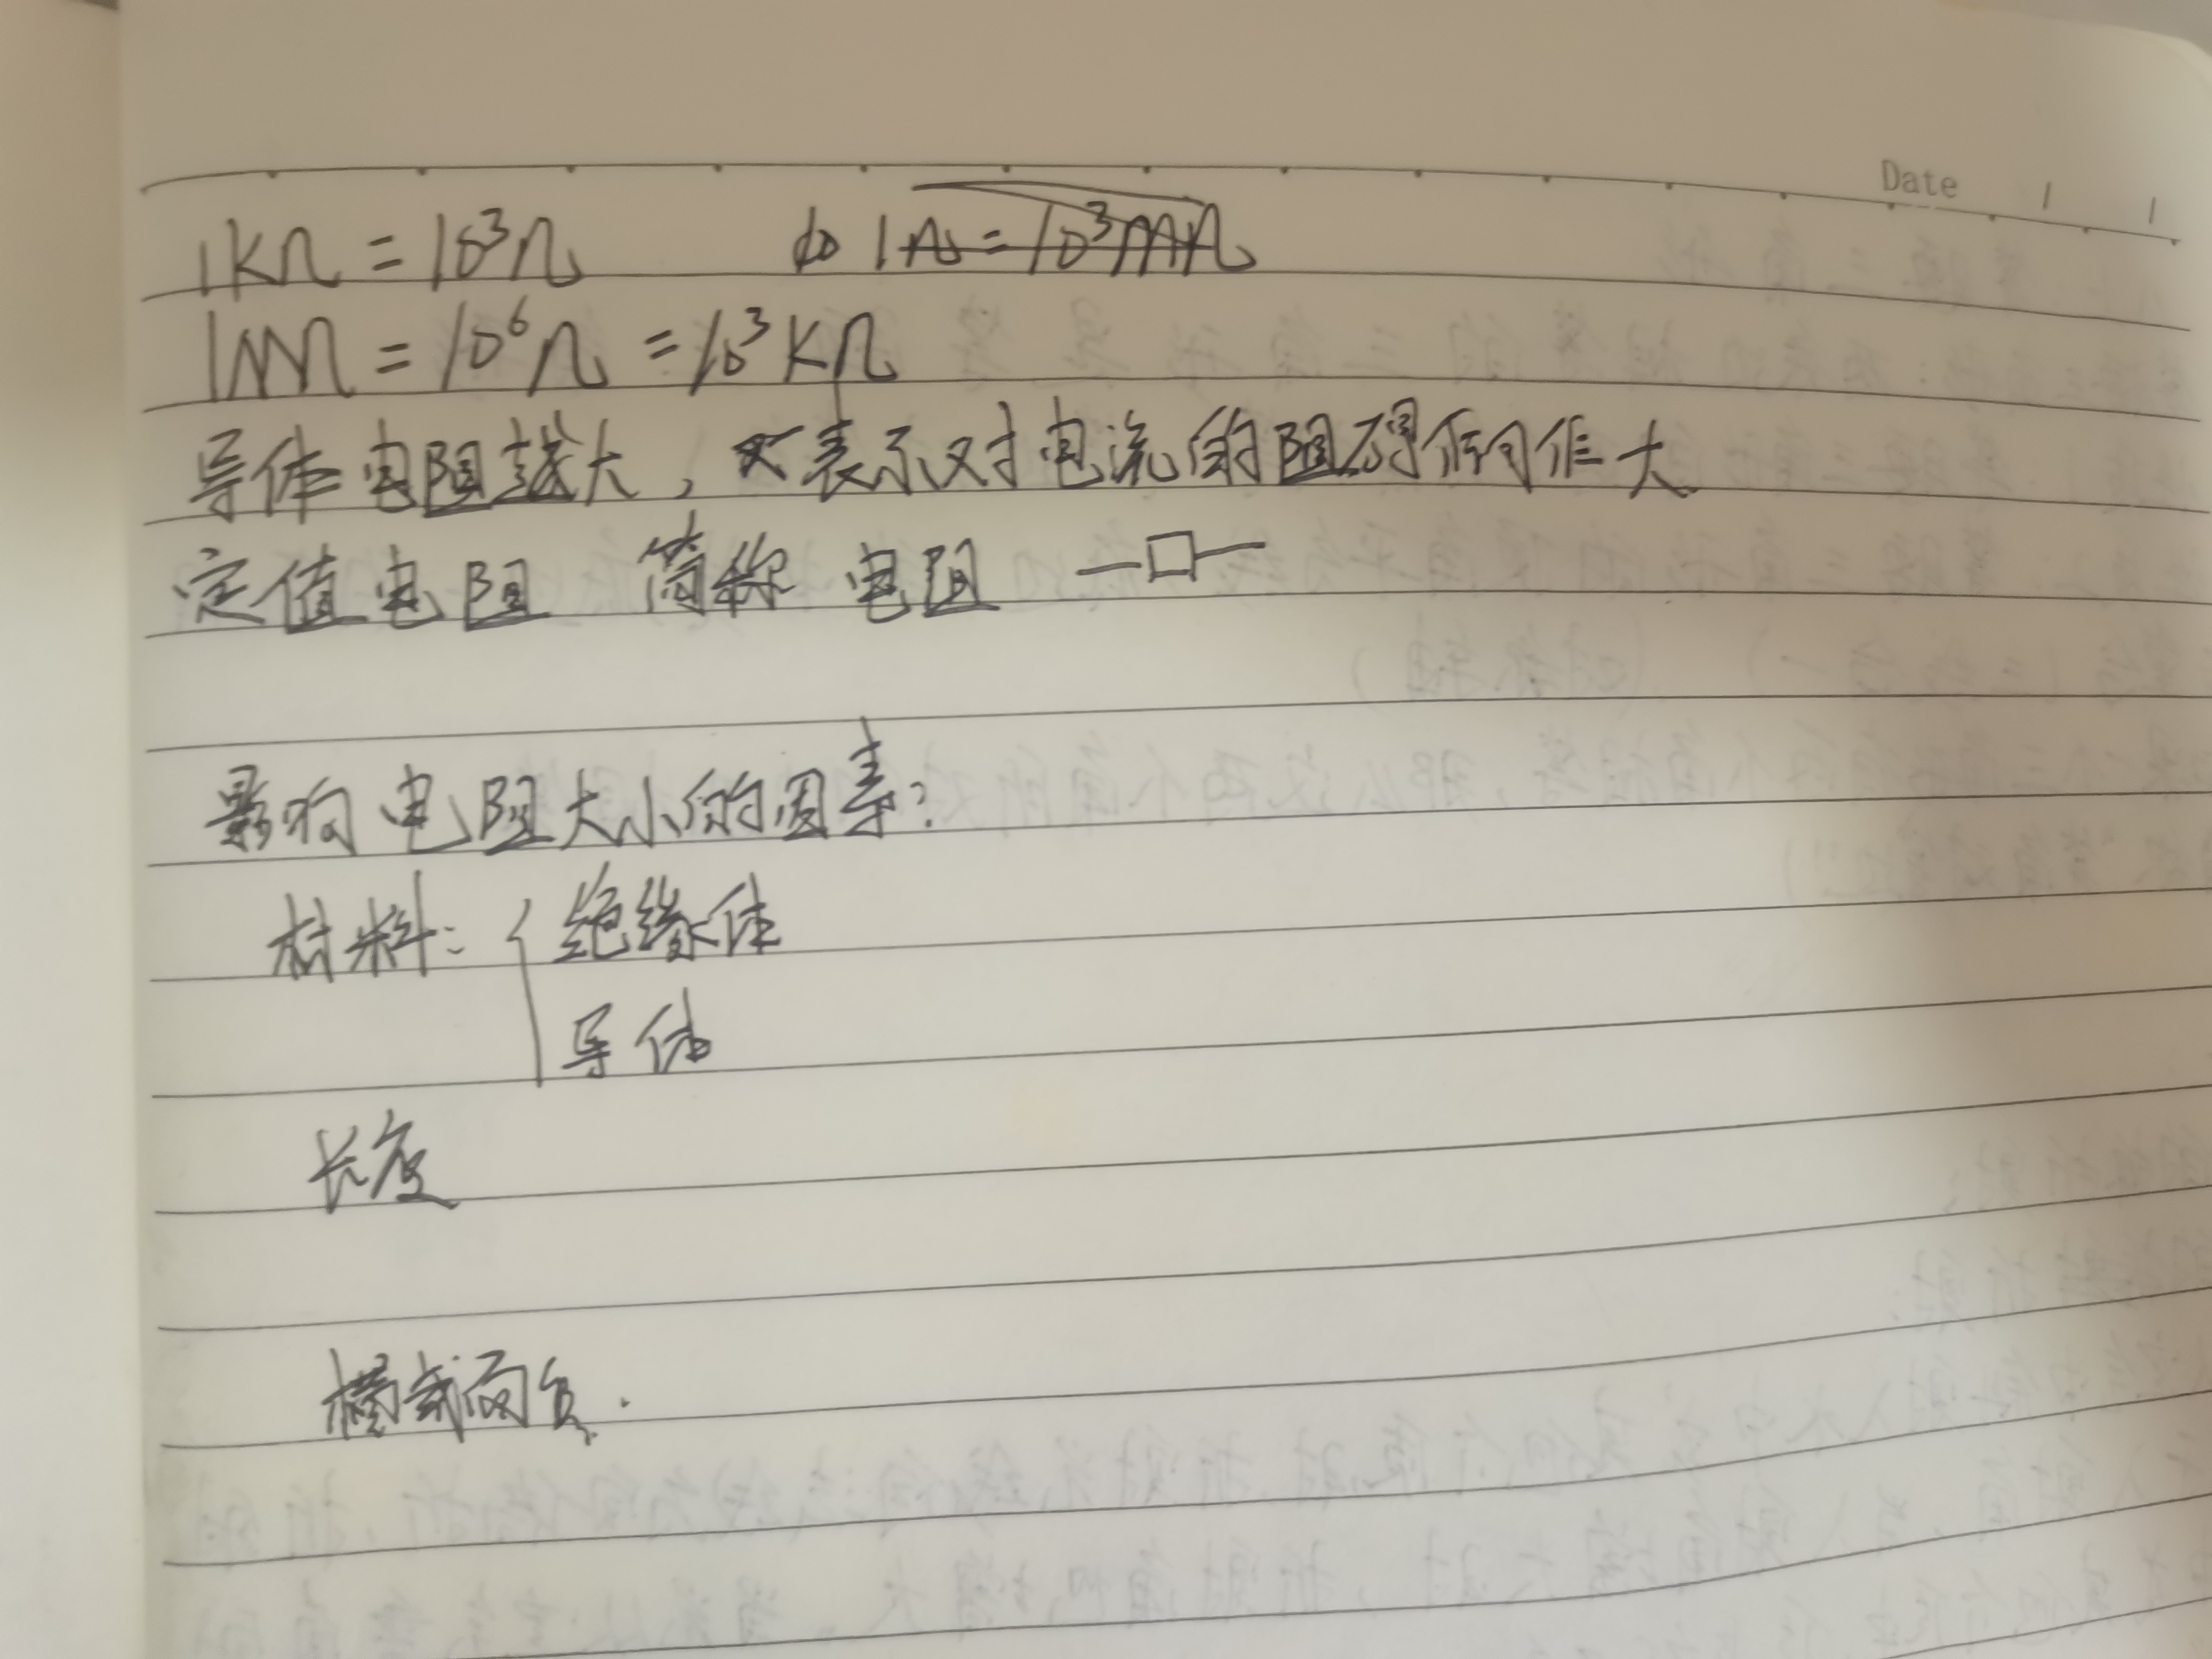 Date / /
1kΩ = 10³Ω 1Ω = 10³mΩ
1MΩ = 10⁶Ω = 10³kΩ
导体电阻越大，表示对电流的阻碍作用大
定值电阻 简称 电阻
影响电阻大小的因素：
材料： { 绝缘体
导体
长度
横截面负.